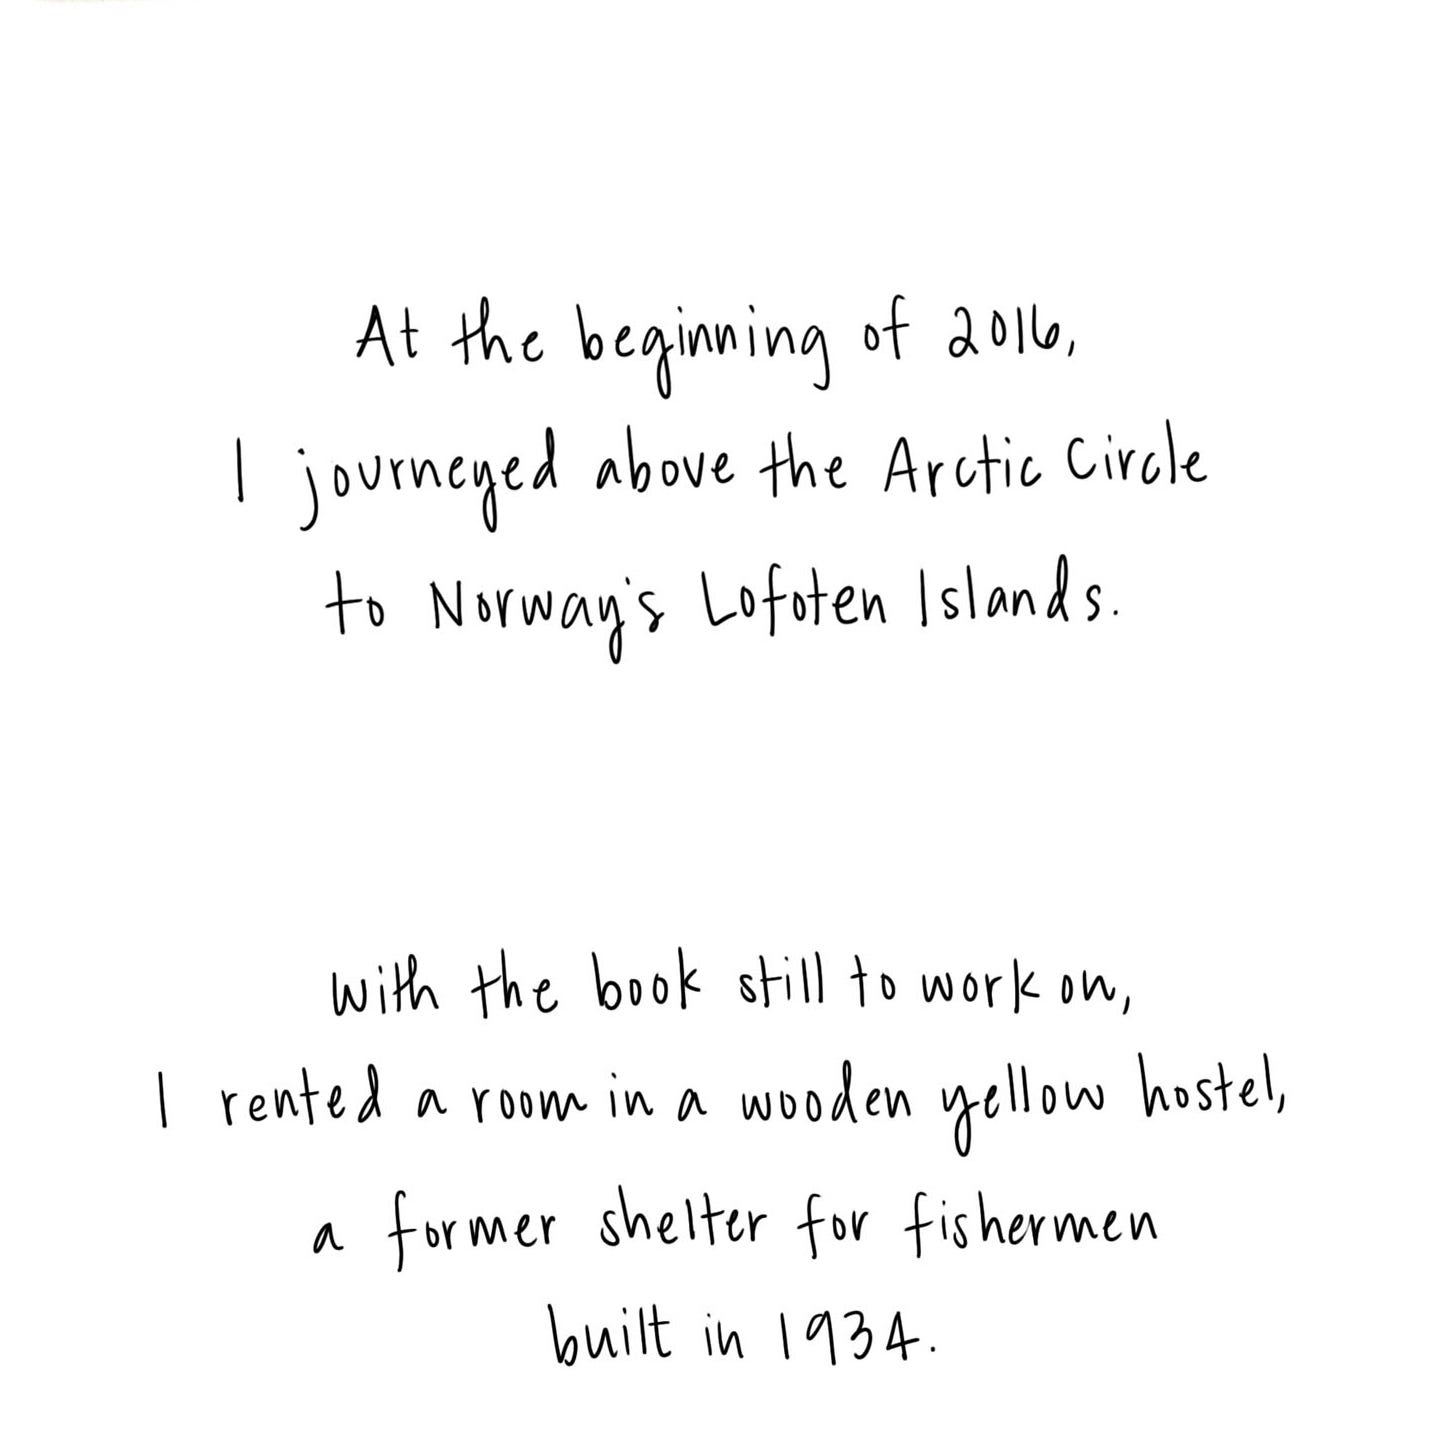 At the beginning of 2016,
I journeyed above the Arctic Circle
to Norway's Lofoten Islands.
With the book still to work on,
I rented a room in a wooden yellow hostel,
a former shelter for fishermen
built in 1934.